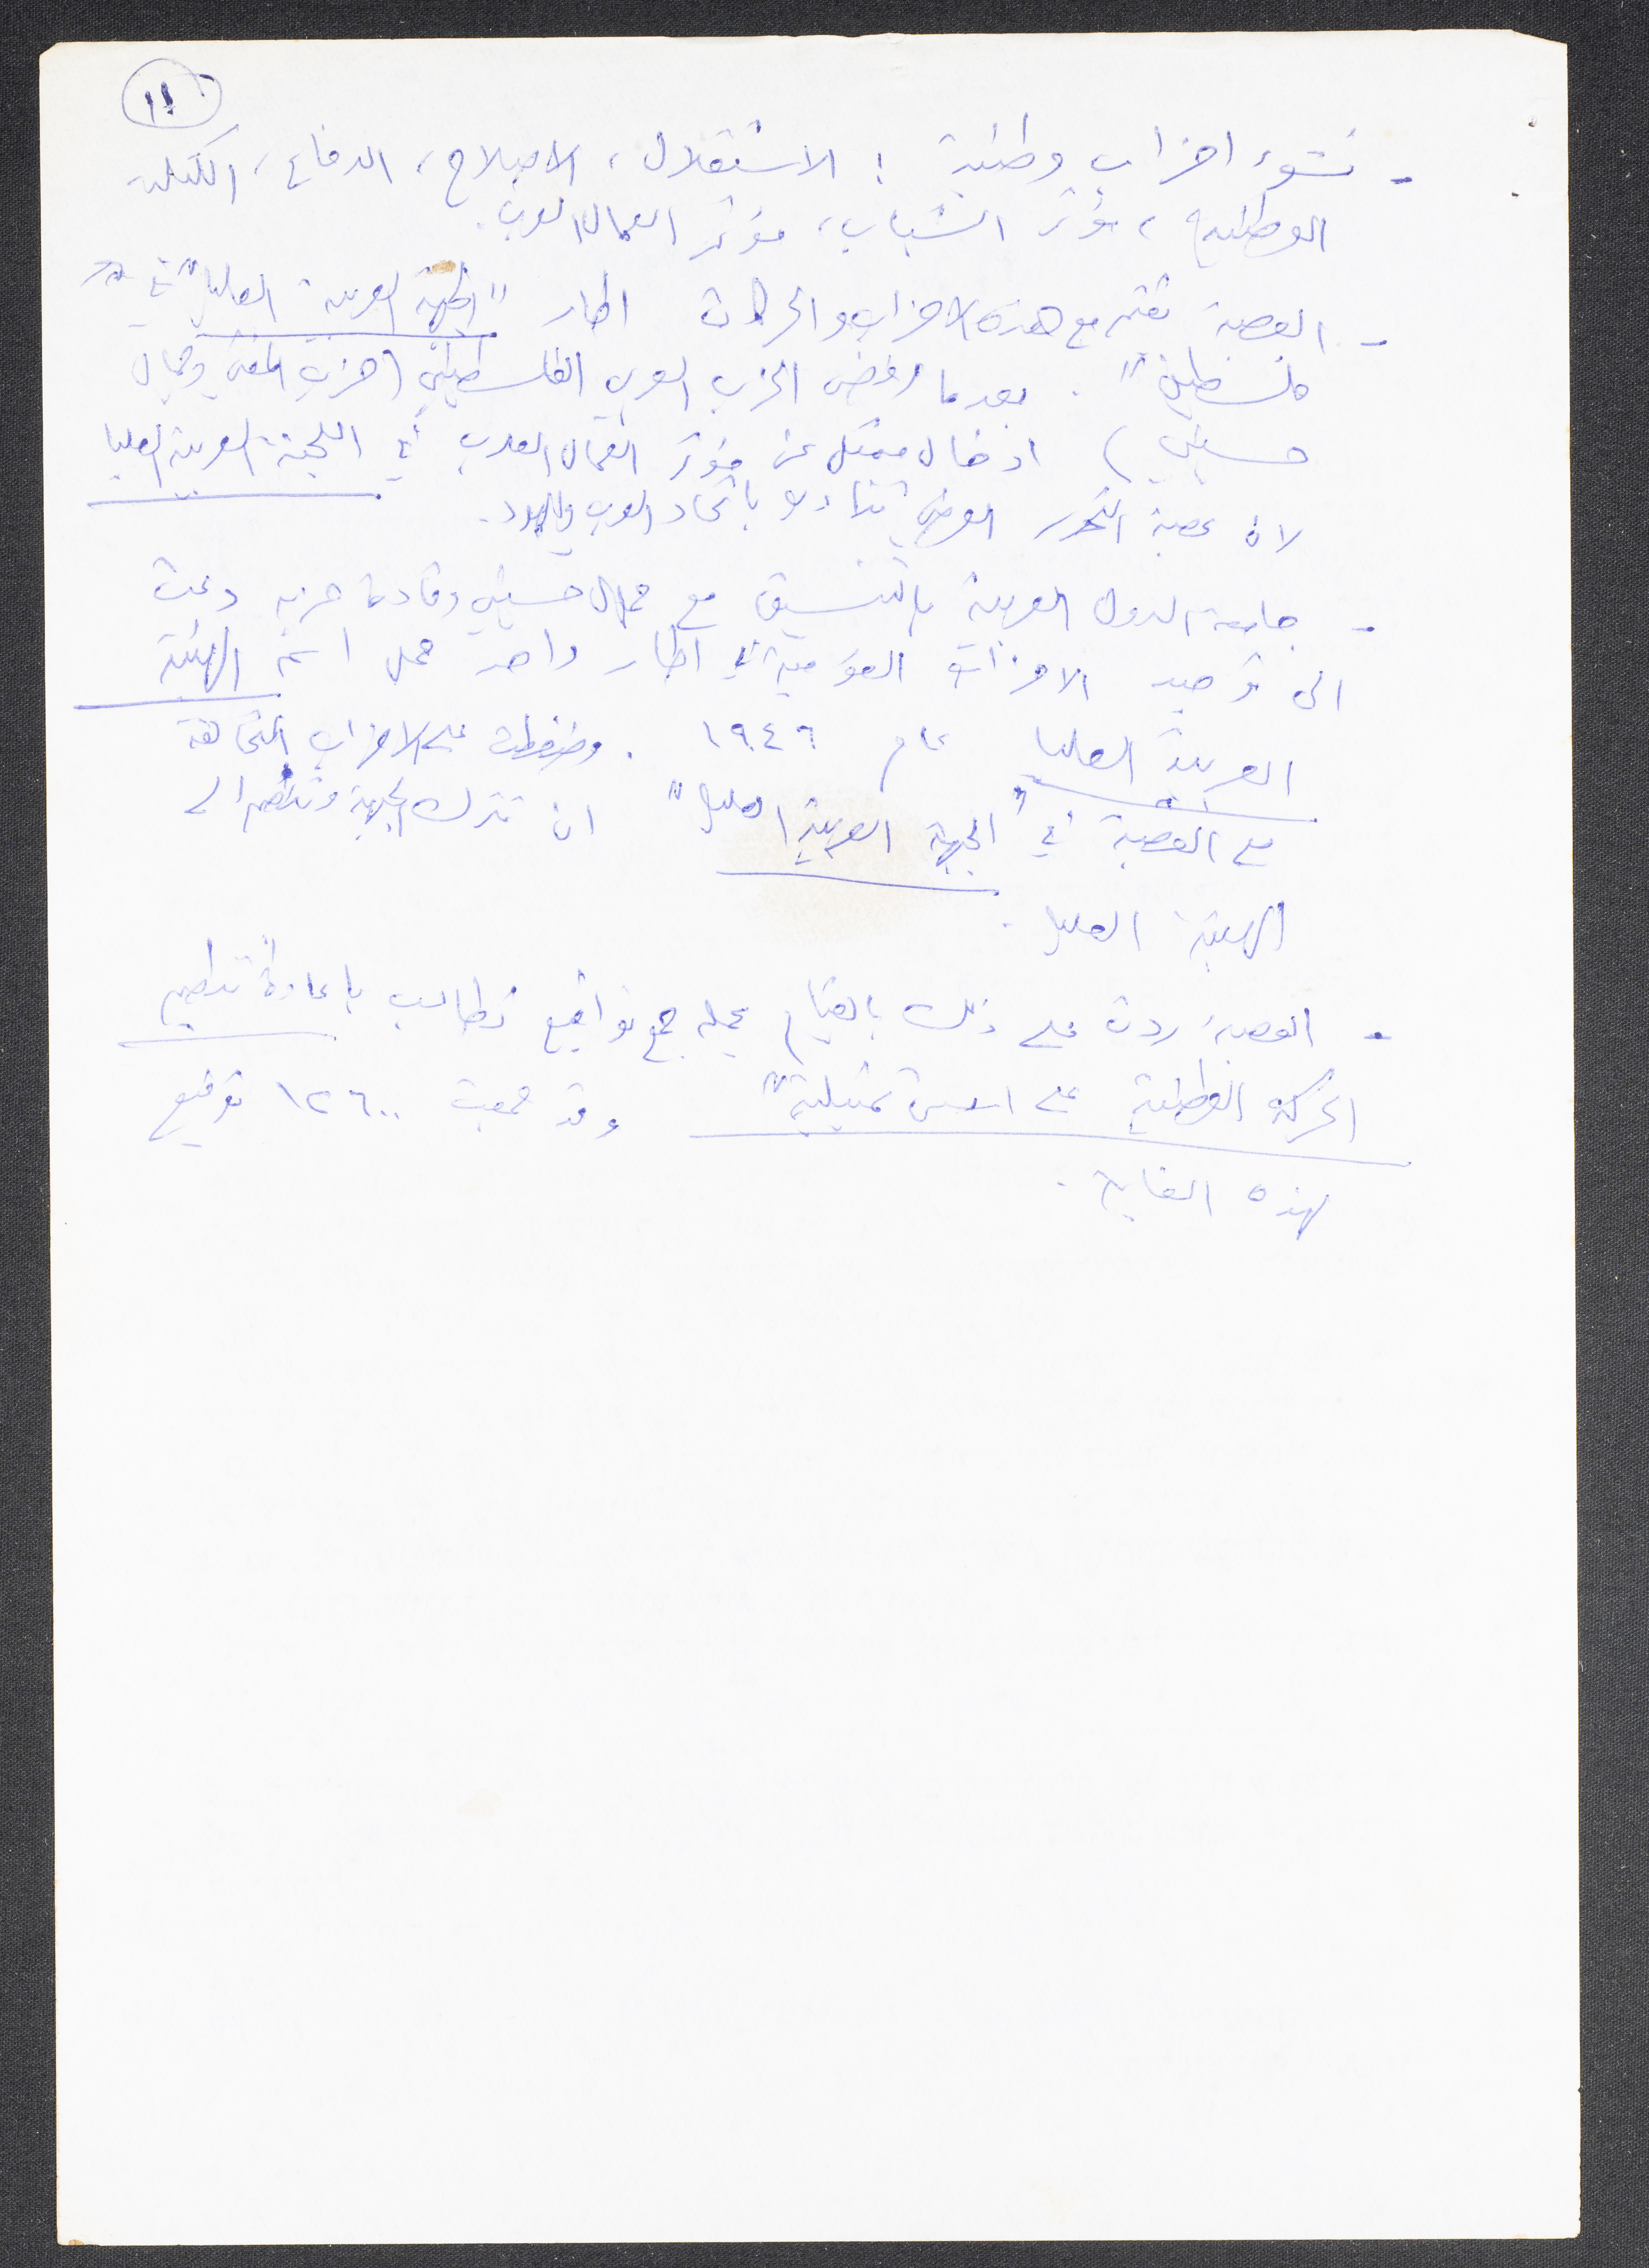 ١١
- نشوء احزاب وطنية : الاستقلال ، الاصلاح ، الدفاع ، الكتلة
الوطنية ، مؤتمر الشباب ، مؤتمر العمال العرب .
- العصبة تقيم مع هذه الاحزاب والحركات اطار "الجبهة العربية العليا" في
فلسطين" . بعدما رفض الحزب العربي الفلسطيني (حزب المفتي وجمال
حسيني) ادخال ممثل عن مؤتمر العمال العرب في اللجنة العربية العليا
لان عصبة التحرر الوطني تنادي باتحاد العرب واليهود .
- جامعة الدول العربية بالتنسيق مع جمال حسيني وقادة حزبه دعت
الى توحيد الاحزاب القومية في اطار واحد حمل اسم الهيئة
العربية العليا عام ١٩٤٦ . وضغطت على الاحزاب المتحالفة
مع العصبة في "الجبهة العربية العليا" ان تترك الجبهة وتنضم الى
الهيئة العليا .
- العصبة ردت على ذلك بالقيام بحملة جمع تواقيع تطالب باعادة "تنظيم
الحركة الوطنية على اسس تمثيلية" وقد جمعت ١٢٦٠٠ توقيع
لهذه الغاية .